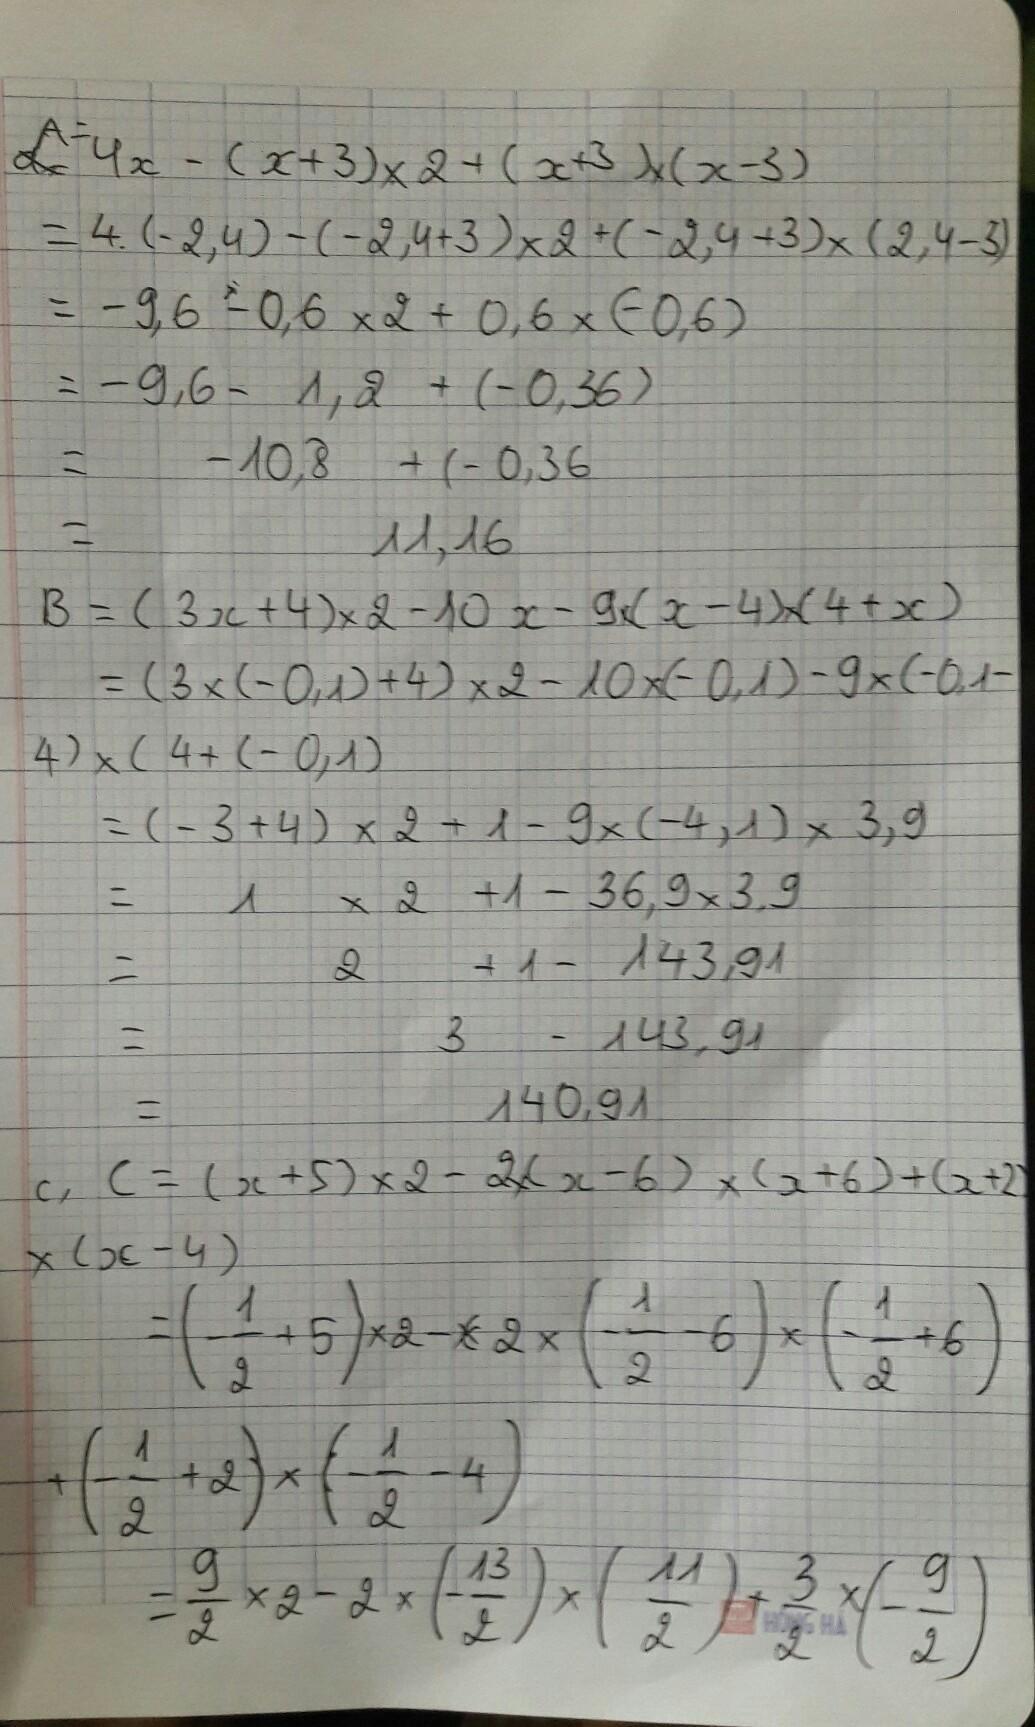 A=
4x - (x+3)×2+(x+3)×(x-3)
=4.(-2,4)-(-2,4+3)×2+(-2,4+3)×(2,4-3)
= -9,6 - 0,6 ×2+ 0,6 ×(-0,6)
= -9,6- 1,2 + (-0,36)
= -10,8 +(-0,36
= 11,16
B = (3x+4)×2-10x-9×(x-4)×(4+x)
= (3×(-0,1)+4)×2-10×(-0,1)-9×(-0,1-
4)×(4+(-0,1)
= (-3+4) × 2 + 1 - 9×(-4,1) × 3,9
= 1 × 2 +1 - 36,9×3,9
= 2 + 1 - 143,91
= 3 - 143,91
= 140,91
c, C = (x+5)×2-2×(x-6) ×(x+6)+(x+2)
×(x-4)
=(-1/2+5)×2-2×(-1/2-6)×(-1/2+6)
+(-1/2+2)×(-1/2-4)
=9/2×2-2×(-13/2)×(11/2)+3/2×(-9/2)
HỒNG HÀ